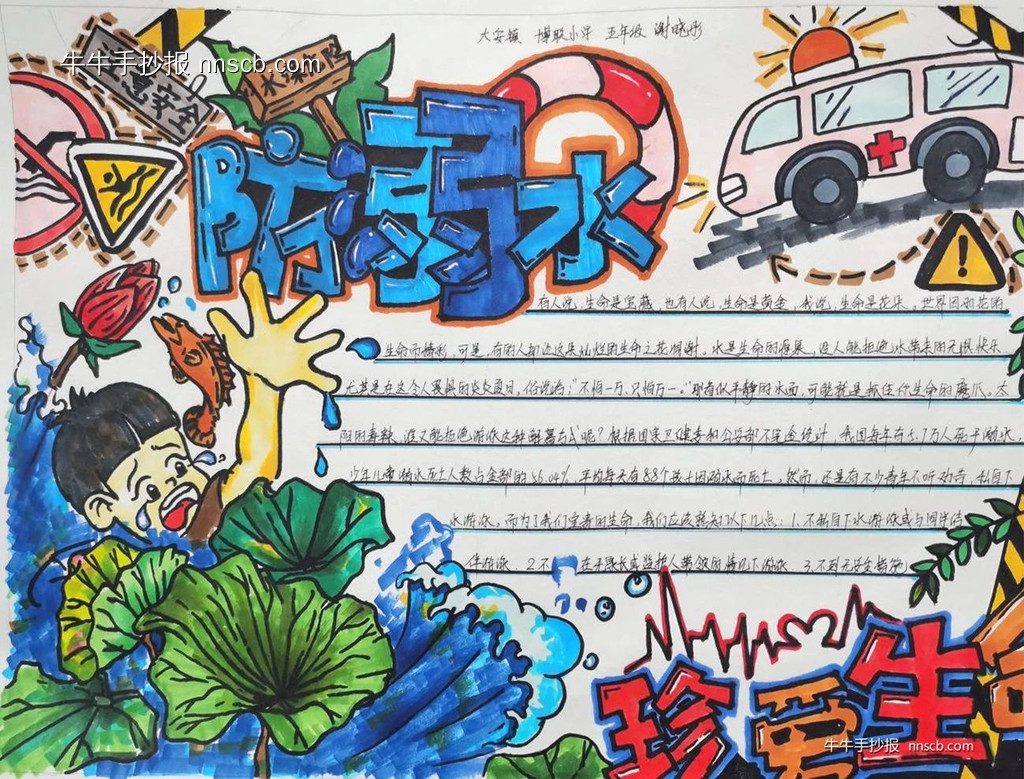 大安镇 博联小学 五年级 谢晓彤
牛牛手抄报 nnscb.com
意安全
水深危险
防溺水
有人说,生命是宝藏,也有人说,生命是黄金,我说,生命是花朵。世界因为花的
生命而精彩。可是,有的人却让这朵灿烂的生命之花凋谢。水是生命的源泉,没人能拒绝水带来的无限快乐
尤其是在这令人畏惧的炎炎夏日。俗说:"不怕一万,只怕万一。"那看似平静的水面,可能就是抓住你生命的魔爪。太
阳的毒辣,谁又能拒绝游泳这种解暑方式呢?根据国家卫健委和公安部不完全统计,我国每年有5.7万人死于溺水
少年儿童溺水死亡人数占全部的56.04%,平均每天有88个孩子因溺水而死亡。然而,还是有不少青年不听劝告,私自下
水游泳,而为了我们宝贵的生命,我们应该熟知以下几点:1.不私自下水游泳或与同伴结
伴游泳 2.不在无家长或监护人带领的情况下游泳 3.不到无安全措施
珍爱生
牛牛手抄报 nnscb.com